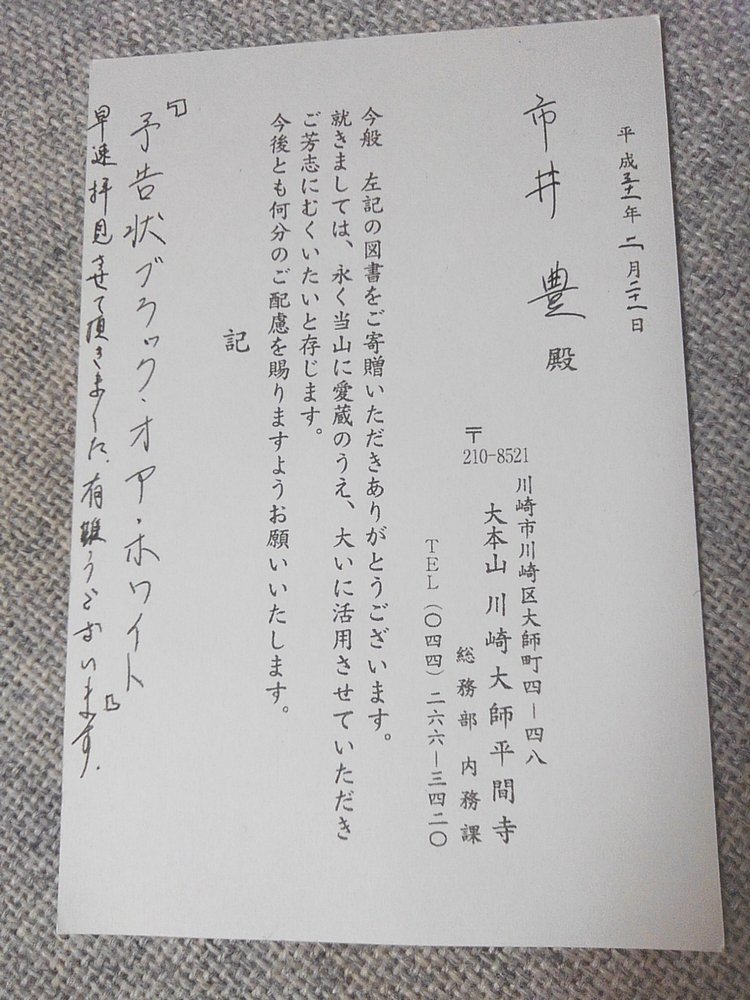 平成三十一年 二月二十一日
市井 豊 殿
〒210-8521
川崎市川崎区大師町四―四八
大本山 川崎大師平間寺
総務部 内務課
TEL(〇四四)二六六―三四二〇
今般 左記の図書をご寄贈いただきありがとうございます。
就きましては、永く当山に愛蔵のうえ、大いに活用させていただき
ご芳志にむくいたいと存じます。
今後とも何分のご配慮を賜りますようお願いいたします。
記
『予告状ブラック・オア・ホワイト』
早速拝見させて頂きました、有難うございます。